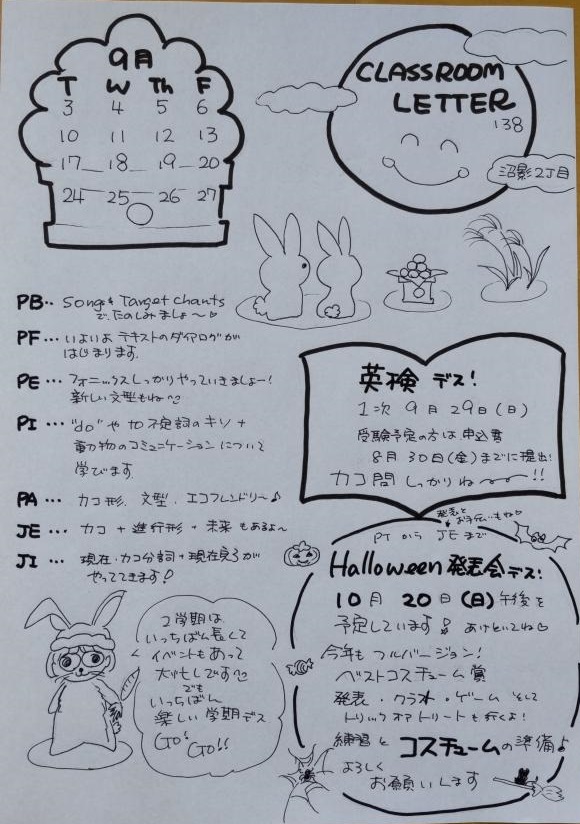 9月
T W Th F
3 4 5 6
10 11 12 13
17 18 19 20
24 25 26 27
CLASSROOM
LETTER
'138
沼影2丁目
PB.. Songs & Target Chants
で、たのしみましょ〜♡
PF... いよいよ テキストのダイアログが
はじまります.
PE... フォニックスしっかりやっていきましょー!
新しい文型もね
PI... "do" や to不定詞のキソ +
動物のコミュニケーションについて
学びます
PA... カコ形. 文型. エコフレンドリー♪
JE... カコ + 進行形 + 未来 もあるよ〜
JI... 現在・カコ分詞 + 現在完了が
やってきます!
英検 デス!
1次 9月29日(日)
受験予定の方は 申込書
8月30日(金)までに提出!
カコ問 しっかりね〜〜!!
発表と
お手伝いもね♡
PIから JEまで
Halloween 発表会デス!
10月 20日(日)午後を
予定しています! あけといてね♡
今年も フルバージョン!
ベストコスチューム賞
発表・クラフト・ゲーム そして
トリックオアトリートも行くよ!
練習と コスチュームの準備よ
よろしく
お願いします
2学期は
いっちばん長くて
イベントもあって
大忙しです
でも
いっちばん
楽しい学期デス
GO! GO!!